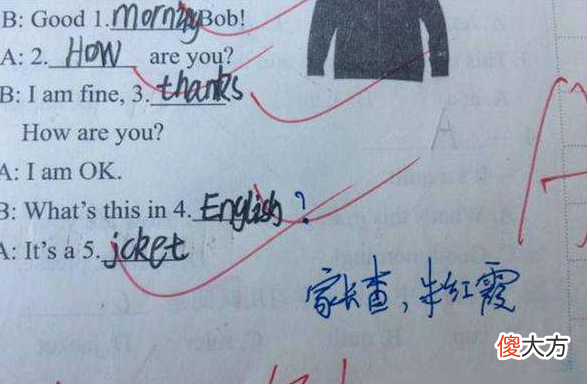 B: Good 1. morning Bob!
A: 2. How are you?
B: I am fine, 3. thanks
How are you?
A: I am OK.
B: What's this in 4. English ?
A: It's a 5. jcket
A
家长查，朱红霞
傻大方